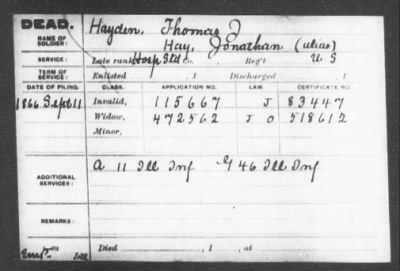 DEAD. Hayden, Thomas J
NAME OF SOLDIER: Hay, Jonathan (alias)
SERVICE: Late rank Hosp Std Co. , Reg't U S
TERM OF SERVICE: Enlisted , 1 Discharged , 1
DATE OF FILING. CLASS. APPLICATION NO. LAW. CERTIFICATE NO.
1866 Sept 11 Invalid, 115667 J 83447
Widow, 472562 J O 518612
Minor,
ADDITIONAL SERVICES: A 11 Ill Inf G 46 Ill Inf
REMARKS:
Died , 1 , at